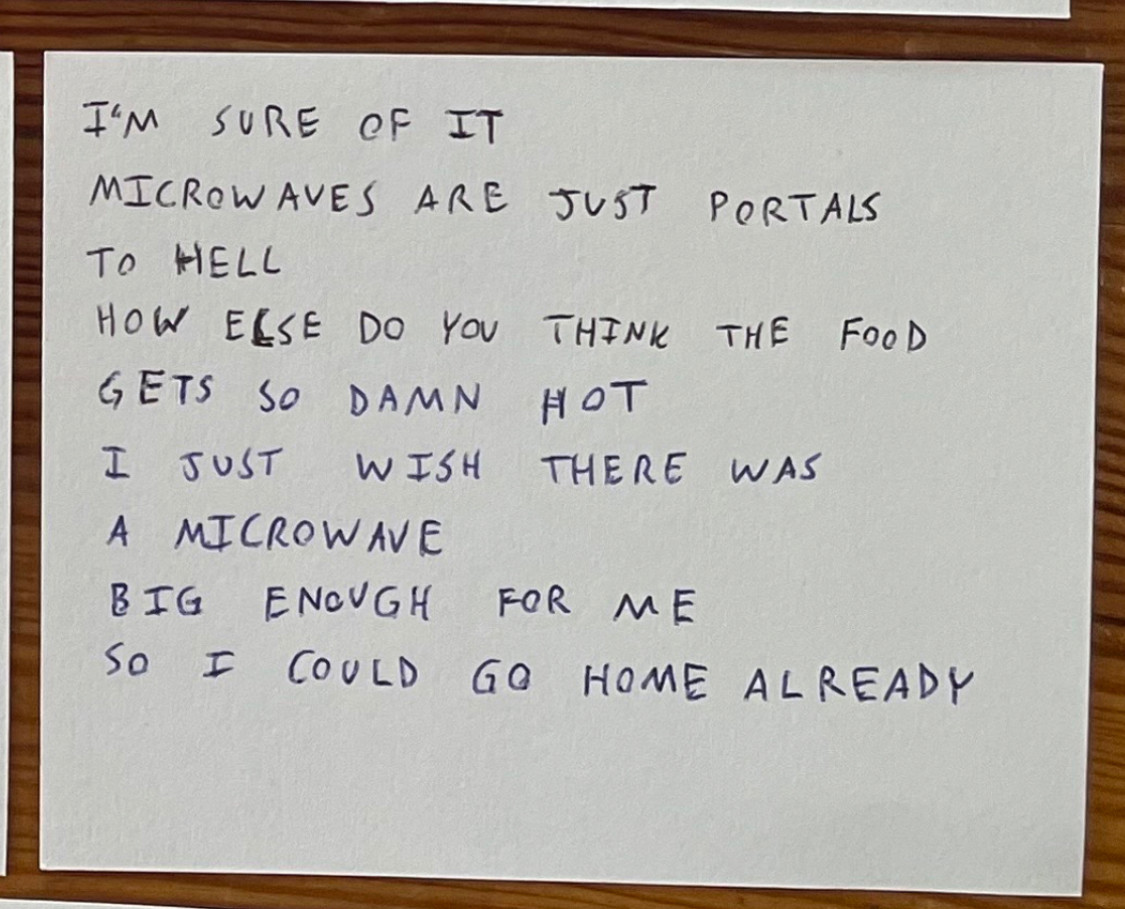 I'M SURE OF IT
MICROWAVES ARE JUST PORTALS
TO HELL
HOW ELSE DO YOU THINK THE FOOD
GETS SO DAMN HOT
I JUST WISH THERE WAS
A MICROWAVE
BIG ENOUGH FOR ME
SO I COULD GO HOME ALREADY